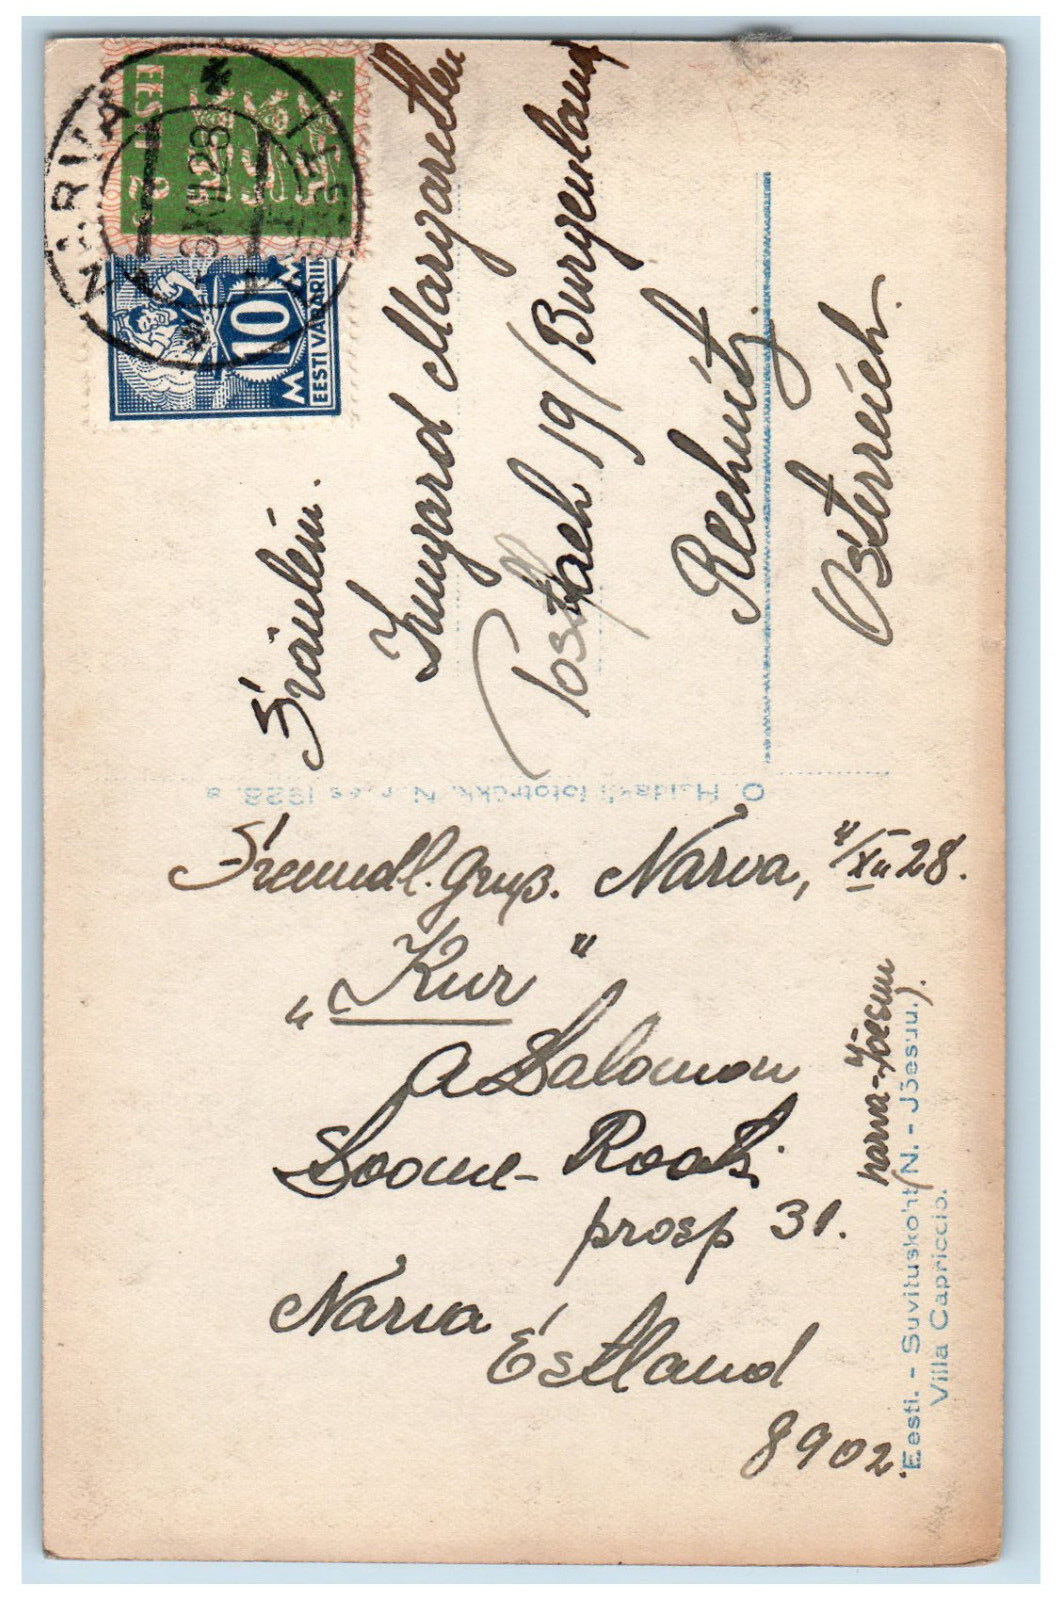 NARVA
EESTI
-8 XII 28
EESTI 2 S
10
M M
EESTI VABARIIK
Fräulein.
Irmgard Margaretten
Postfach 19/Burgenland
Rechnitz.
Österreich.
Freundl. Gruß. Narva, 4/XII 28.
„Kur"
A Salomon
Soome-Rootsi
prosp 31.
Narva
Estland
8902.
Narva-Jõesuu
Eesti. - Suvituskoht (N. - Jõesuu.).
Villa Capriccio.